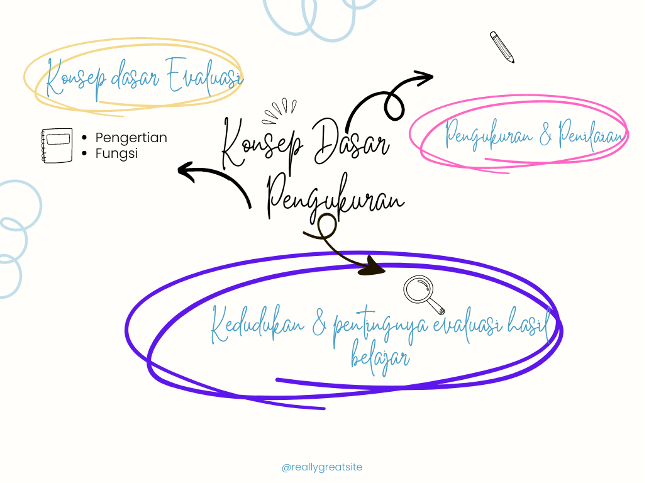 Konsep dasar Evaluasi
Pengertian
Fungsi
Konsep Dasar
Pengukuran
Pengukuran & Penilaian
Kedudukan & pentingnya evaluasi hasil
belajar
@reallygreatsite